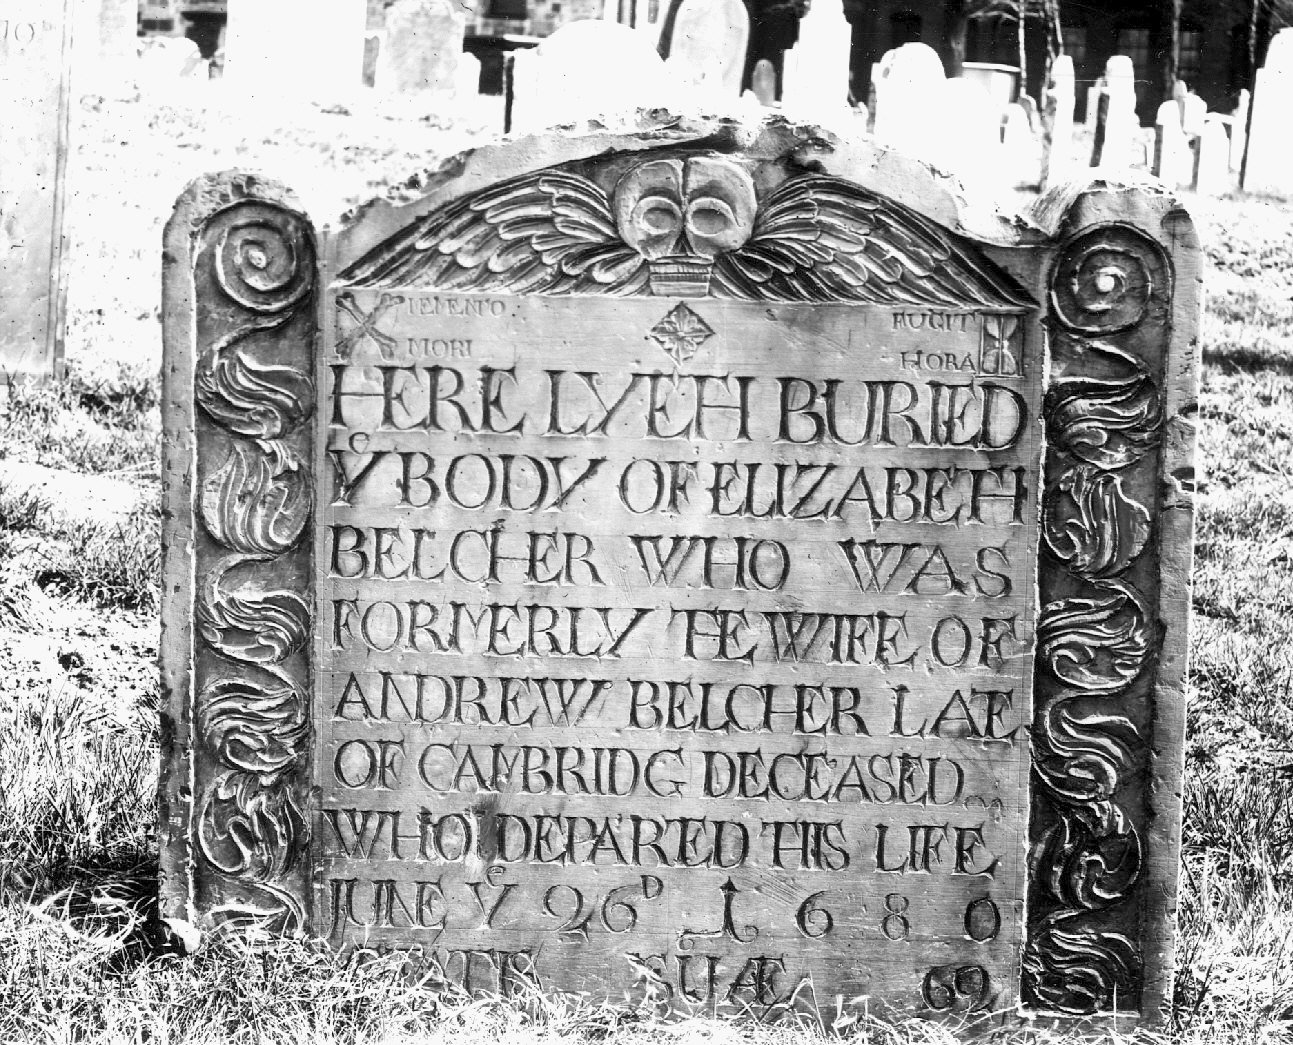 MEMENTO
MORI
FUGIT
HORA
HERE LYETH BURIED
Yᵉ BODY OF ELIZABETH
BELCHER WHO WAS
FORMERLY THE WIFE OF
ANDREW BELCHER LATE
OF CAMBRIDG DECEASED
WHO DEPARED THIS LIFE
JUNE Yᵉ 26ᴰ 1680
ÆTATIS SUÆ 69